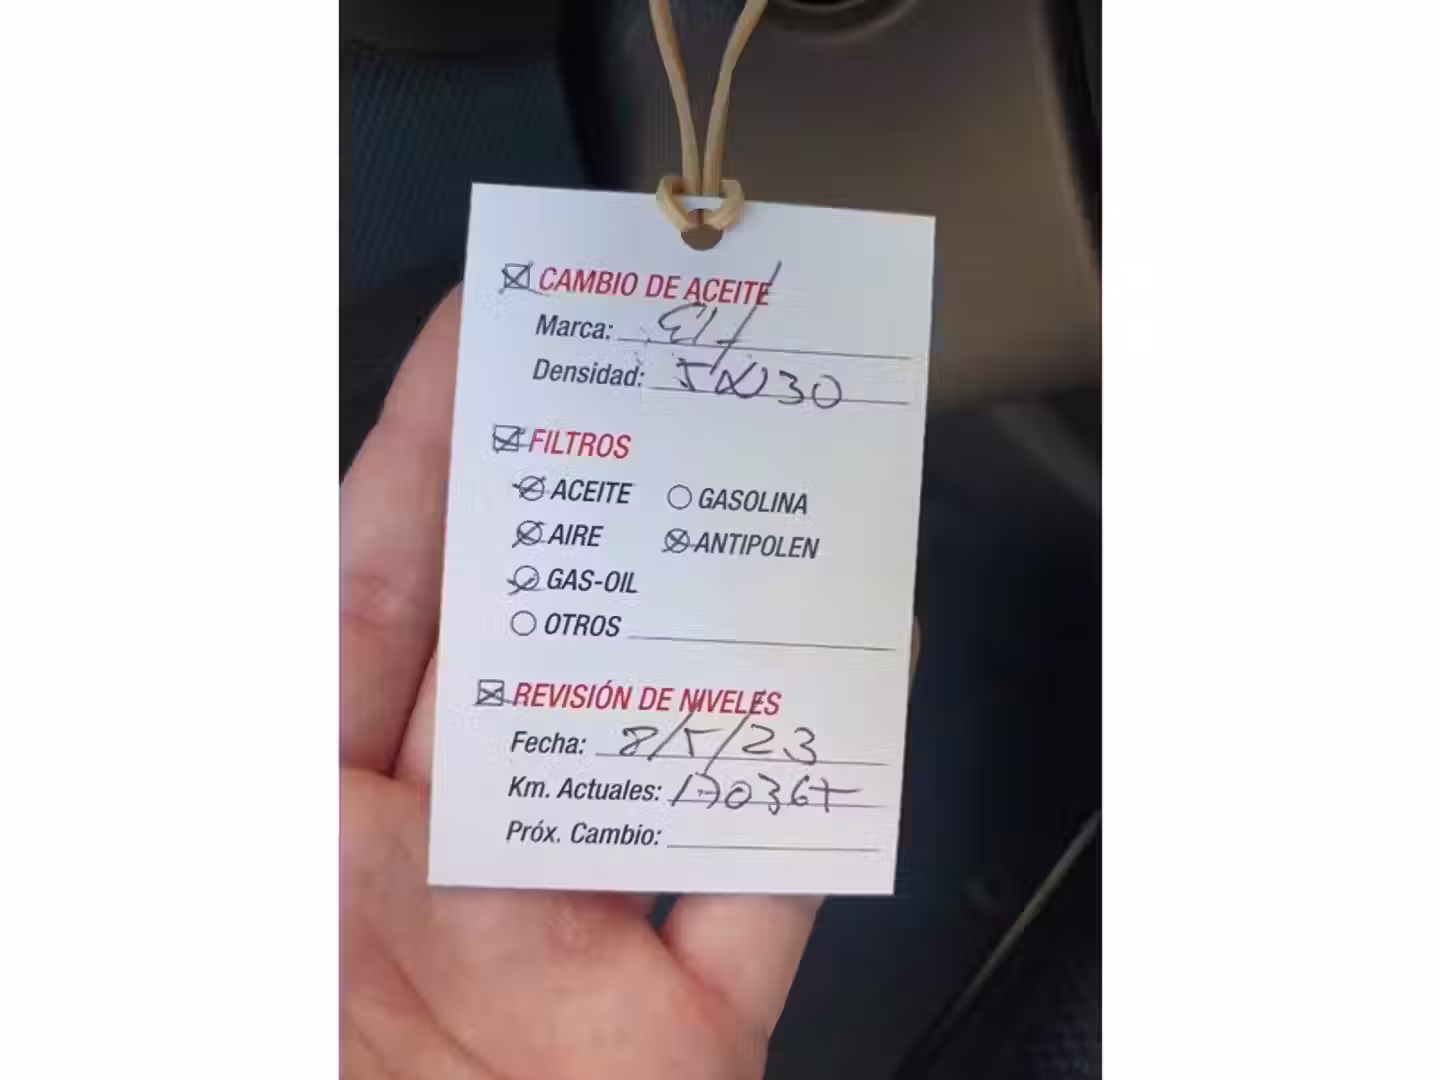 CAMBIO DE ACEITE
Marca: Elf
Densidad: 5W30
FILTROS
ACEITE GASOLINA
AIRE ANTIPOLEN
GAS-OIL
OTROS
REVISIÓN DE NIVELES
Fecha: 8/5/23
Km. Actuales: 170367
Próx. Cambio: